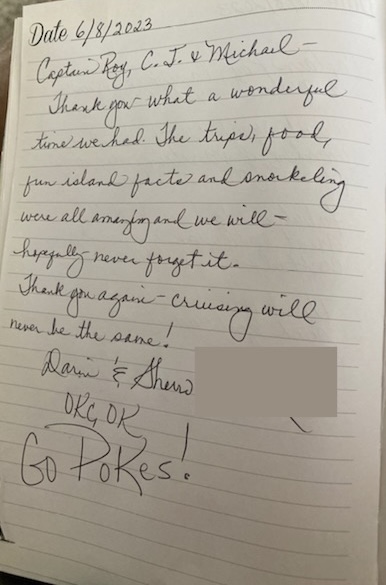 Date 6/8/2023
Captain Roy, C.J. & Michael -
Thank you - what a wonderful
time we had. The trips, food,
fun island facts and snorkeling
were all amazing and we will -
hopefully - never forget it.
Thank you again - cruising will
never be the same!
Darin & Sherri
OKC, OK
Go Pokes!